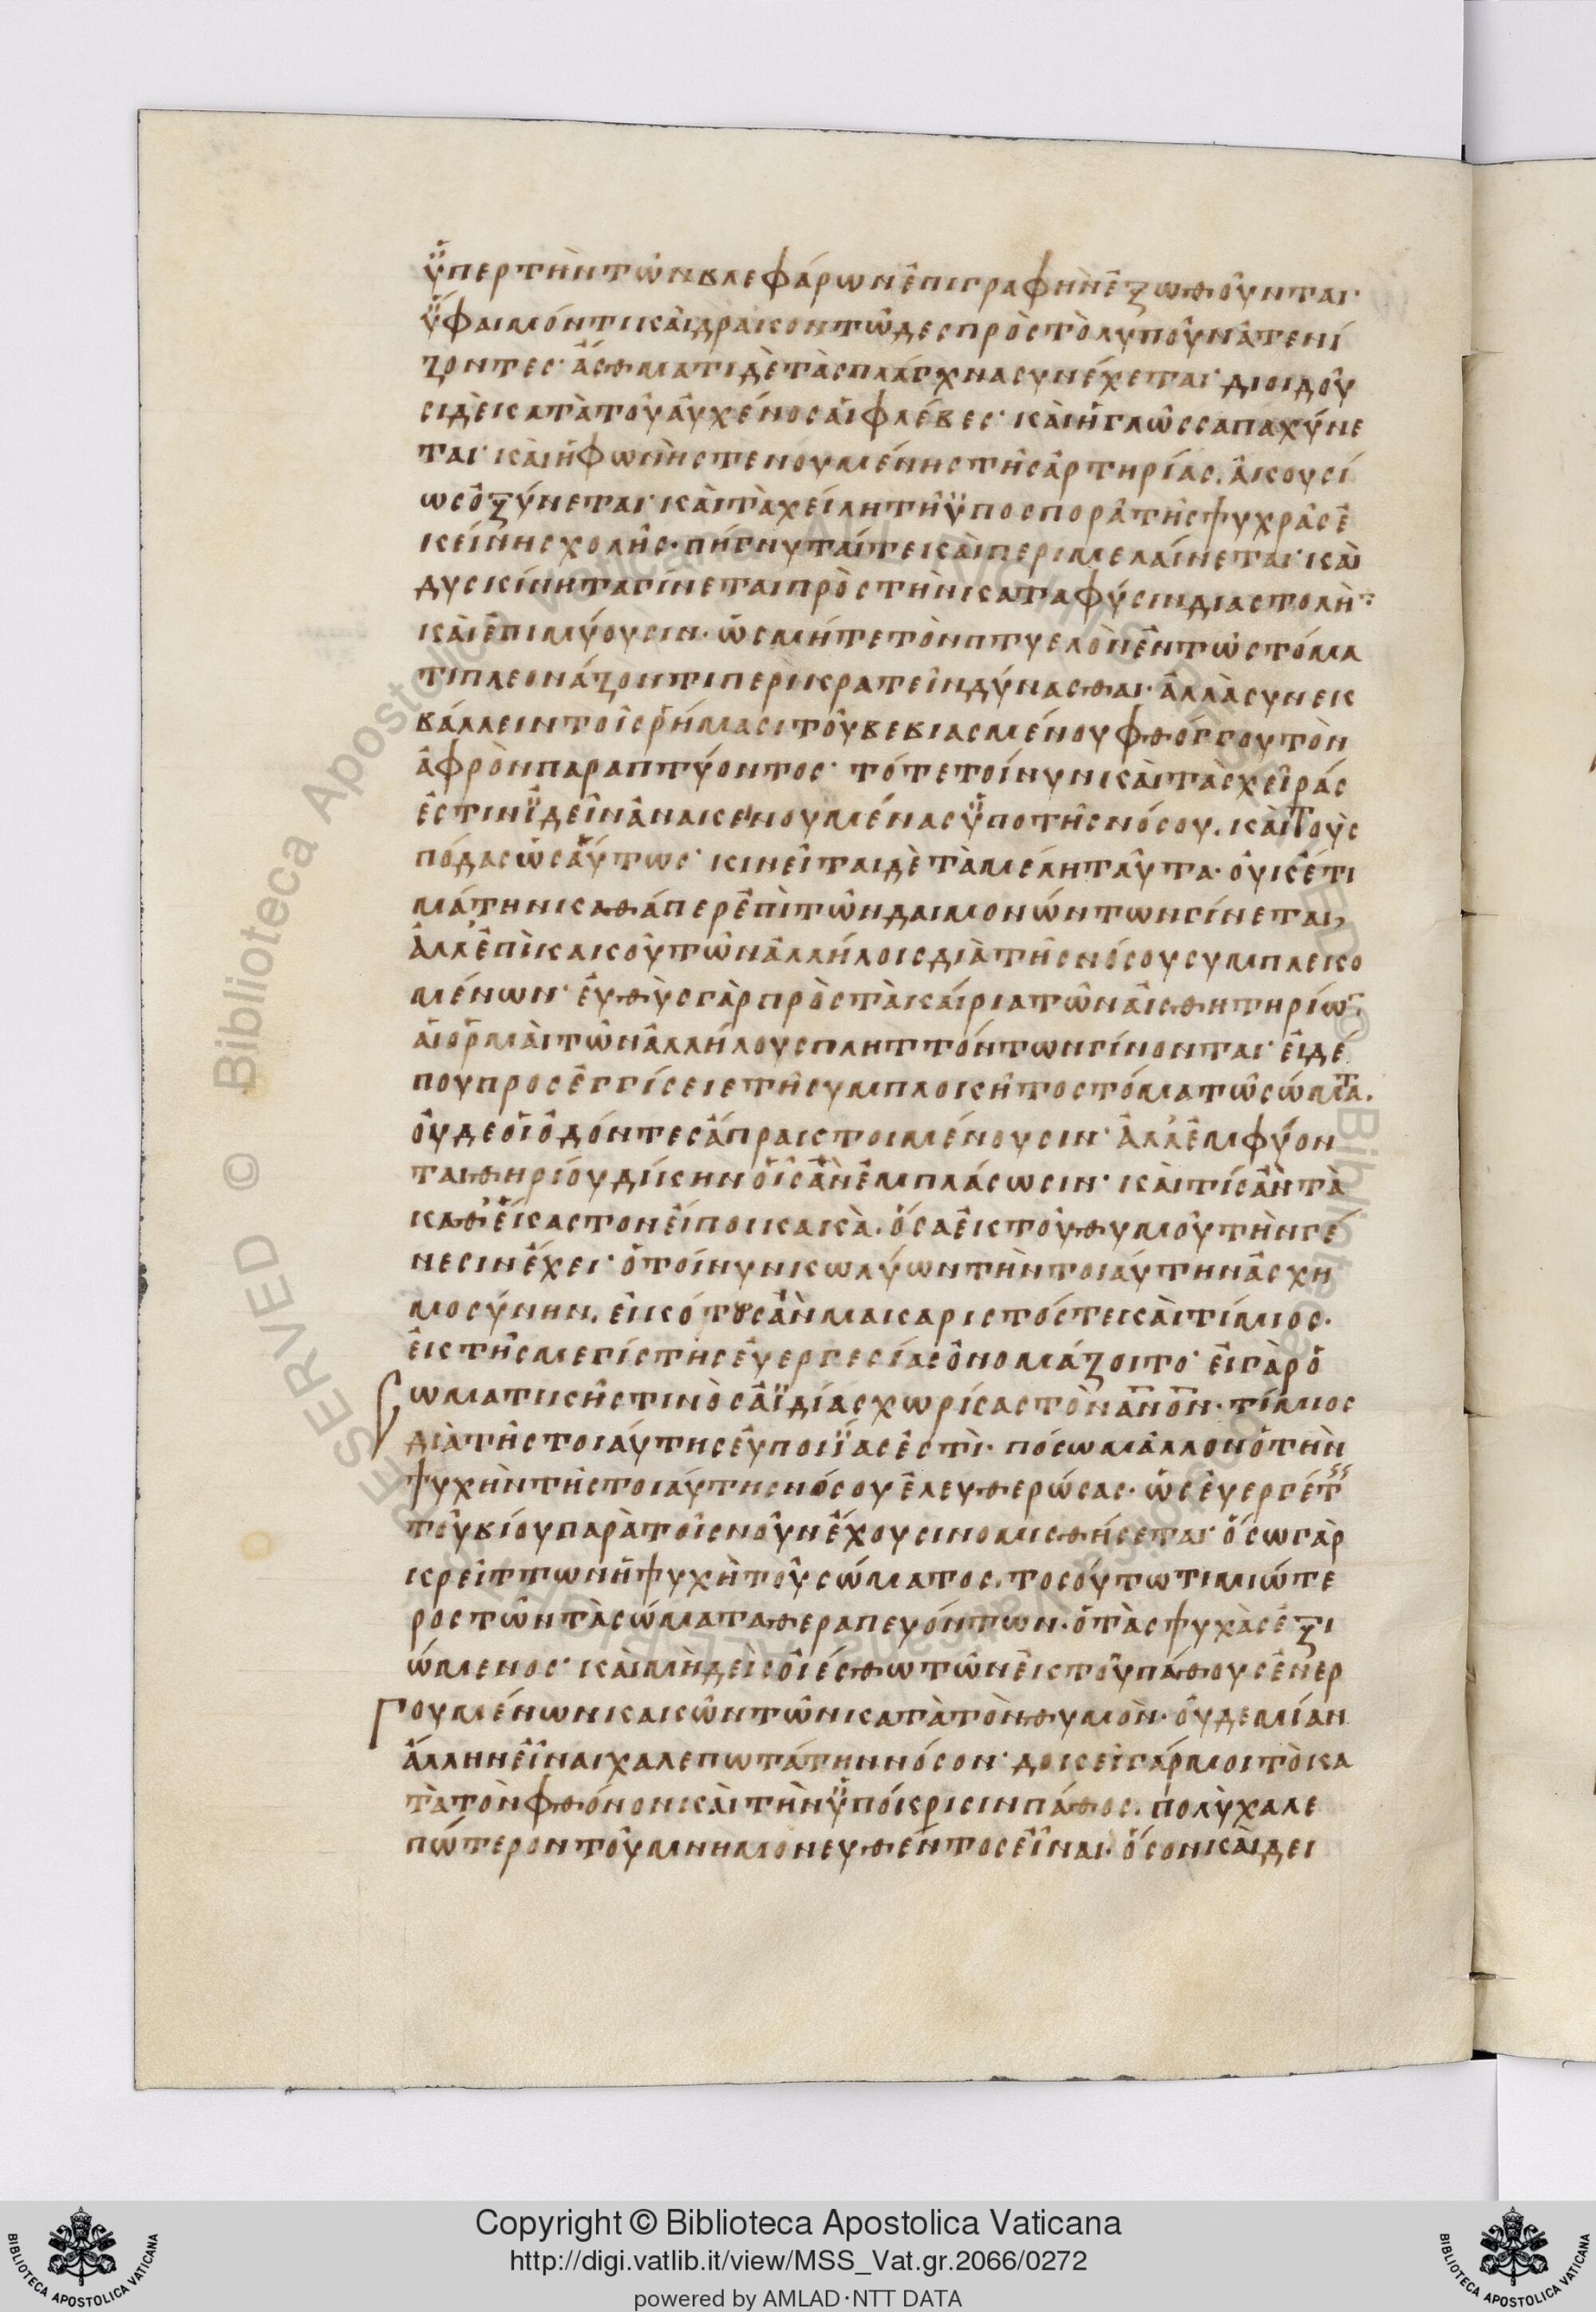 ὑπὲρ τὴν τῶν βλεφάρων ἐπιγραφὴν ἐξωθοῦνται·
ὕφαιμόν τι καὶ δρακοντῶδες πρὸς τὸ λυποῦν ἀτενί
ζοντες· ἄσθματι δὲ τὰ σπλάγχνα συνέχεται· διοιδοῦ
σι δὲ κατὰ τοῦ αὐχένος αἱ φλέβες· καὶ ἡ γλῶσσα παχύνε
ται· καὶ ἡ φωνὴ στενουμένης τῆς ἀρτηρίας, ἀκουσί
ως ὀξύνεται· καὶ τὰ χείλη τῇ ὑποσπορᾷ τῆς ψυχρᾶς ἐ
κείνης χολῆς· πήγνυταί τε καὶ περιμελαίνεται· καὶ
δυσκίνητα γίνεται πρὸς τὴν κατὰ φύσιν διαστολὴν
καὶ ἐπιμύουσιν· ὡς μήτε τὸν πτυελὸν ἐν τῷ στόμα
τι πλεονάζοντι περικρατεῖν δύνασθαι· ἀλλὰ συνεκ
βάλλειν τοῖς ῥήμασι τοῦ βεβιασμένου φθόγγου τὸν
ἀφρὸν παραπτύοντος· τότε τοίνυν καὶ τὰς χεῖράς
ἐστιν ἰδεῖν ἀνακενουμένας ὑπὸ τῆς νόσου, καὶ τοὺς
πόδας ὡσαύτως· κινεῖται δὲ τὰ μέλη ταῦτα· οὐκέτι
μάτην καθάπερ ἐπὶ τῶν δαιμονώντων γίνεται,
ἀλλ' ἐπὶ κακοῦ τῶν ἀλλήλοις διὰ τῆς νόσου συμπλεκο
μένων· εὐθὺς γὰρ πρὸς τὰ καίρια τῶν αἰσθητηρίων
αἱ ὁρμαὶ τῶν ἀλλήλους πληττόντων γίνονται· εἰ δέ
που προσεγγίσειε τῇ συμπλοκῇ τὸ στόμα τῷ σώματι.
οὐδὲ οἱ ὀδόντες ἄπρακτοι μένουσιν· ἀλλ' ἐμφύον
ται θηρίου δίκην οἷς ἂν ἐμπλάσωσιν· καὶ τίς ἂν τὰ
καθ' ἕκαστον εἴποι κακὰ, ὅσα ἐκ τοῦ θυμοῦ τὴν γέ
νεσιν ἔχει· ὁ τοίνυν κωλύων τὴν τοιαύτην ἀσχη
μοσύνην, εἰκότως ἂν μακαριστός τε καὶ τίμιος·
ἐκ τῆς μεγίστης εὐεργεσίας ὀνομάζοιτο· εἰ γὰρ ὁ
ωματικῆς τινὸς ἀϊδίας χωρίσας τὸν ανον· τίμιος
διὰ τῆς τοιαύτης εὐποιΐας ἐστὶ· πόσῳ μᾶλλον ὁ τὴν
ψυχὴν τῆς τοιαύτης νόσου ἐλευθερώσας· ὡς εὐεργέτης
τοῦ βίου παρὰ τοῖς νοῦν ἔχουσι νομισθήσεται· ὅσῳ γὰρ
κρείττων ἡ ψυχὴ τοῦ σώματος, τοσούτῳ τιμιώτε
ρος τῶν τὰ σώματα θεραπευόντων· ὁ τὰς ψυχὰς ἐξι
ώμενος· καὶ μὴδεὶς οἰέσθω τῶν ἐκ τοῦ πάθους ἐνερ
γουμένων κακῶν τῶν κατὰ τὸν θυμὸν· οὐδεμίαν
ἄλλην εἶναι χαλεπωτάτην νόσον· δοκεῖ γάρ μοι τὸ κα
τὰ τὸν φθόνον καὶ τὴν ὑπόκρισιν πάθος, πολὺ χαλε
πώτερον τοῦ μνημονευθέντος εἶναι· ὅσον καὶ δει
Copyright © Biblioteca Apostolica Vaticana
http://digi.vatlib.it/view/MSS_Vat.gr.2066/0272
powered by AMLAD·NTT DATA